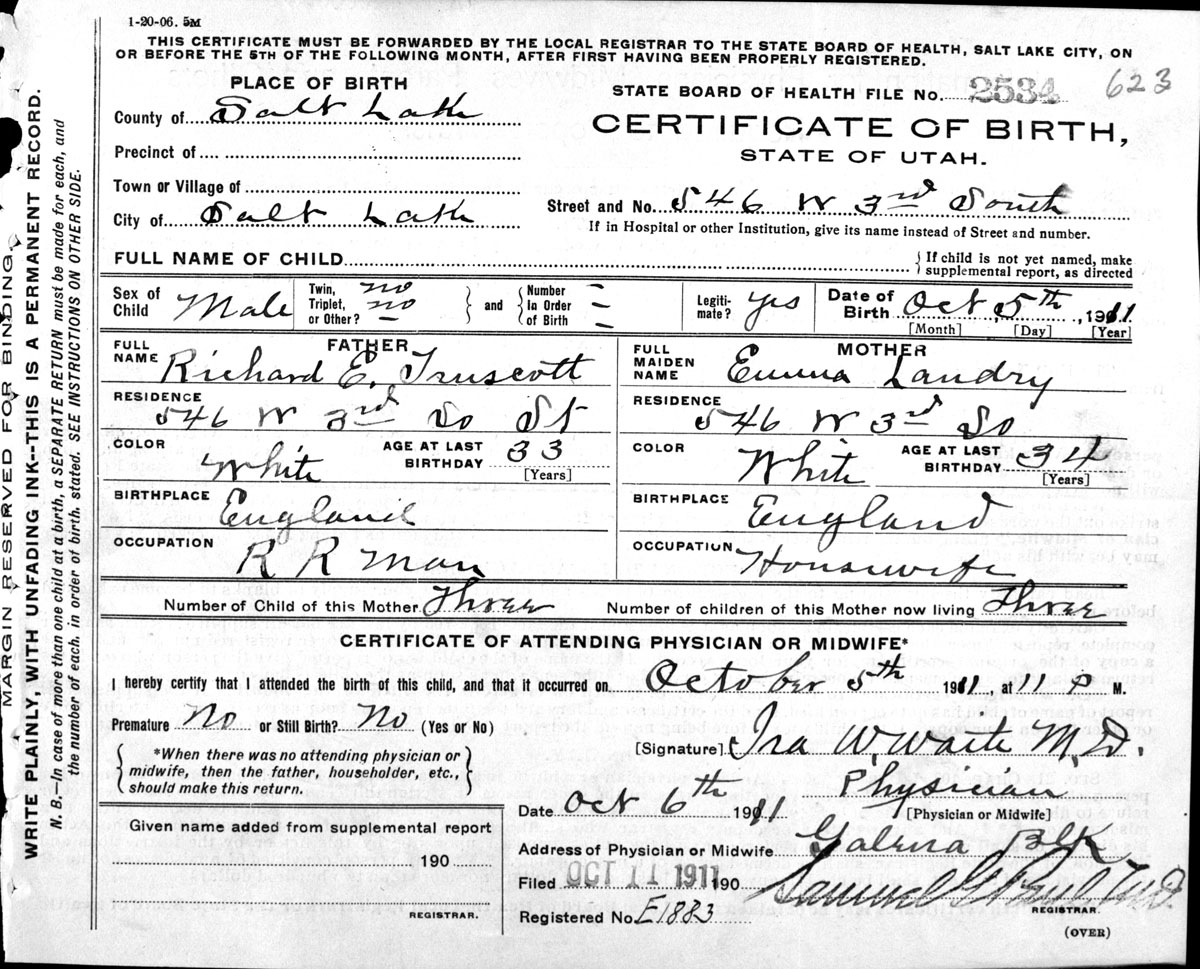 1-20-06. 5M
THIS CERTIFICATE MUST BE FORWARDED BY THE LOCAL REGISTRAR TO THE STATE BOARD OF HEALTH, SALT LAKE CITY, ON
OR BEFORE THE 5TH OF THE FOLLOWING MONTH, AFTER FIRST HAVING BEEN PROPERLY REGISTERED.
PLACE OF BIRTH
STATE BOARD OF HEALTH FILE No. 2534 623
County of Salt Lake
CERTIFICATE OF BIRTH,
STATE OF UTAH.
Precinct of
Town or Village of
City of Salt Lake
Street and No. 546 W 3rd South
If in Hospital or other Institution, give its name instead of Street and number.
FULL NAME OF CHILD
If child is not yet named, make
supplemental report, as directed
Sex of Child Male
Twin, Triplet, or Other? no no
and
Number In Order of Birth – –
Legiti-mate? Yes
Date of Birth Oct 5th, 1911
[Month] [Day] [Year]
FATHER
FULL NAME Richard E. Truscott
RESIDENCE
546 W 3rd So St
COLOR White
AGE AT LAST BIRTHDAY 33
[Years]
BIRTHPLACE England
OCCUPATION R R Man
MOTHER
FULL MAIDEN NAME Emma Landry
RESIDENCE
546 W 3rd So
COLOR White
AGE AT LAST BIRTHDAY 34
[Years]
BIRTHPLACE England
OCCUPATION Housewife
Number of Child of this Mother Three
Number of children of this Mother now living Three
CERTIFICATE OF ATTENDING PHYSICIAN OR MIDWIFE*
I hereby certify that I attended the birth of this child, and that it occurred on October 5th 1911, at 11 P M.
Premature No or Still Birth? No (Yes or No)
[Signature] Ira W. Waite M.D.
*When there was no attending physician or
midwife, then the father, householder, etc.,
should make this return.
Physician
[Physician or Midwife]
Date Oct 6th 1911
Given name added from supplemental report
190
REGISTRAR.
Address of Physician or Midwife Galena Blk.
Filed OCT 11 1911 190
Samuel G. Paul M.D.
REGISTRAR.
Registered No. E1883
(OVER)
MARGIN RESERVED FOR BINDING.
WRITE PLAINLY, WITH UNFADING INK--THIS IS A PERMANENT RECORD.
N. B. In case of more than one child at a birth, a SEPARATE RETURN must be made for each, and
the number of each, in order of birth, stated. SEE INSTRUCTIONS ON OTHER SIDE.